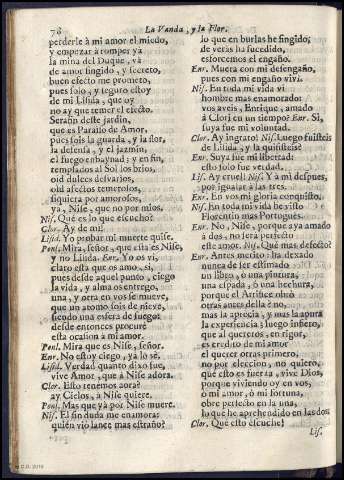 78
La Vanda, y la Flor.
perderle à mi amor el miedo,
y empezar à romper ya
la mina del Duque, và
de amor fingido, y secreto,
buen efecto me prometo,
pues solo, y seguro estoy
de mi Lisida, que oy
no ay que temer el efecto.
Serafin deste jardin,
que es Paraiso de Amor,
pues sois la guarda, y la flor,
la defensa, y el jazmin,
el fuego enbaynad; y en fin,
templados al Sol los brios,
oid dulces desvarios,
oid afectos temerosos,
siquiera por amorosos,
ya, Nise, que no por mios.
Nis. Què es lo que escucho?
Clor. Ay de mi!
Lisid. Yo probar mi muerte quise.
Ponl. Mira, señor, que esta es Nise,
y no Lisida. Enr. Yo os vi,
claro està que os amo, si,
pues desde aquel punto, ciego
la vida, y alma os entrego,
una, y otra en vos se mueve,
que un atomo sois de nieve,
siendo una esfera de fuego:
desde entonces procurè
esta ocasion à mi amor.
Ponl. Mira que es Nise, señor.
Enr. No estoy ciego, ya lo sè.
Lisid. Verdad quanto dixo fue,
vive Amor, que à Nise adora.
Clor. Esto tenemos aora?
ay Cielos, à Nise quiere.
Ponl. Mas que ya por Nise muere.
Nis. El sin duda me enamora:
quien viò lance mas estraño?
lo que en burlas he fingido,
de veras ha sucedido,
estorcemos el engaño.
Enr. Muera con mi desengaño,
pues con mi engaño vivi.
Nis. En toda mi vida vi
hombre mas enamorado:
vos aveis, Enrique, amado
à Clori en un tiempo? Enr. Si,
suya fue mi voluntad.
Clor. Ay ingrato! Nis. Luego fuisteis
de Lisida, y la quisisteis?
Enr. Suya fue mi libertad:
esso solo fue verdad.
Lis. Ay cruel! Nis. Y à mi despues,
por igualar à las tres.
Enr. En vos mi gloria conquisto.
Nis. En toda mi vida he visto
Florentin mas Portuguès.
Enr. No, Nise, porque aya amado
à dos, no serà perfecto
este amor. Nis. Què mas defecto?
Enr. Antes merito: ha dexado
nunca de ser estimado
un libro, ò una pintura,
una espada, ò una hechura,
porque el Artifice obrò
otras antes della? no,
mas la aprecia, y mas la apura
la experiencia; luego infiero,
que al quereros, en rigor,
es credito de mi amor
el querer otras primero,
no por eleccion, no quiero
que esto es fuerza, vive Dios,
porque viviendo oy en vos,
ò mi amor, ò mi fortuna,
obre perfecto en la una,
lo que he aprehendido en las dos.
Clor. Que esto escuche!
Lis.